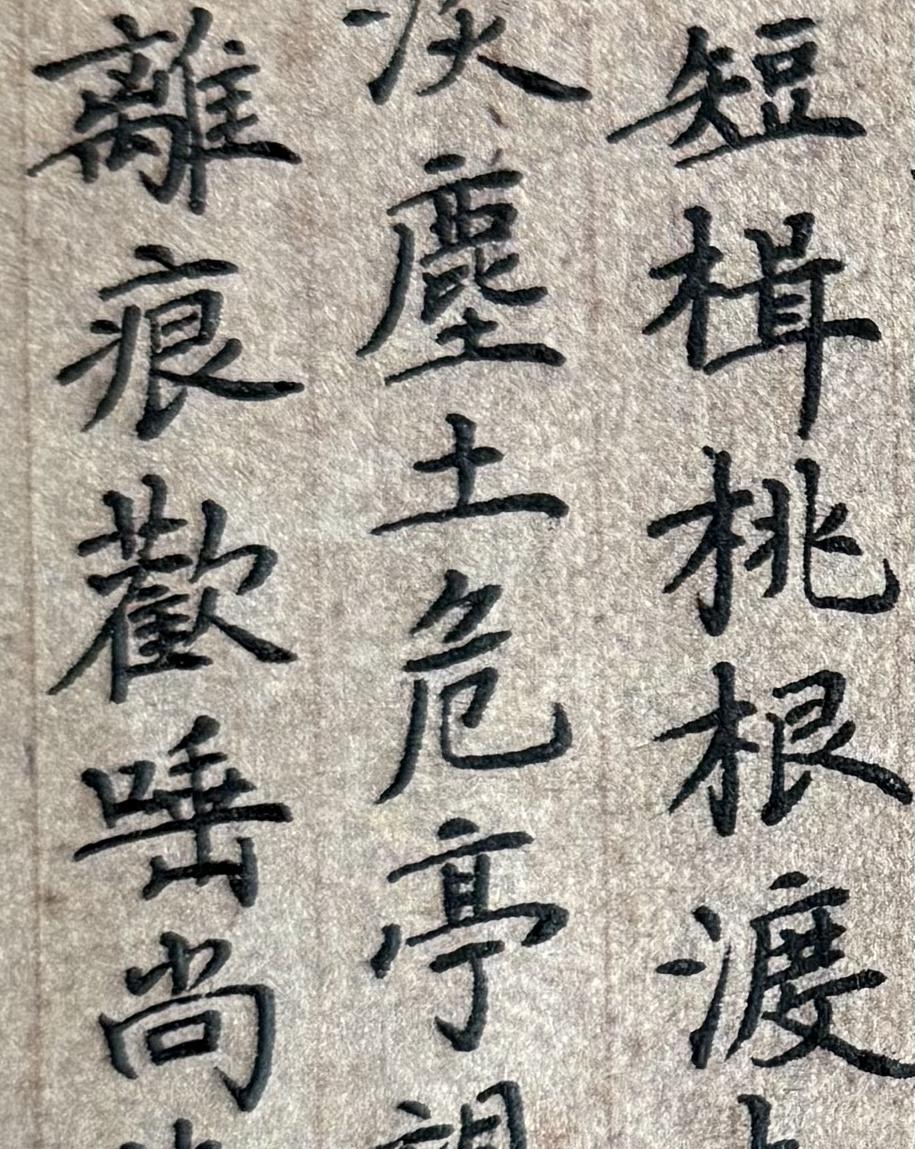 短楫桃根渡
淡塵土危亭
離痕歡唾尚